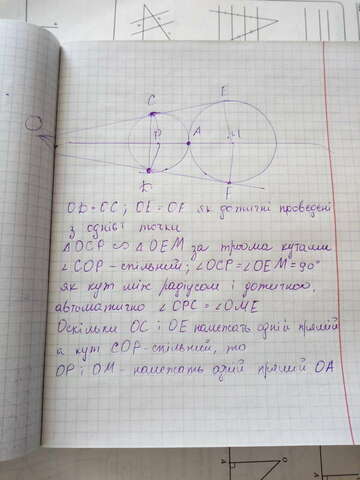 O
C
E
P
A
M
D
F
OD = OC ; OE = OF як дотичні проведені
з однієї точки
△OCP ∞ △OEM за трьома кутами
∠COP - спільний; ∠OCP = ∠OEM = 90°
як кут між радіусом і дотичною,
автоматично ∠OPC = ∠OME
Оскільки OC і OE належать одній прямій
а кут COP - спільний, то
OP і OM - належать одній прямій OA